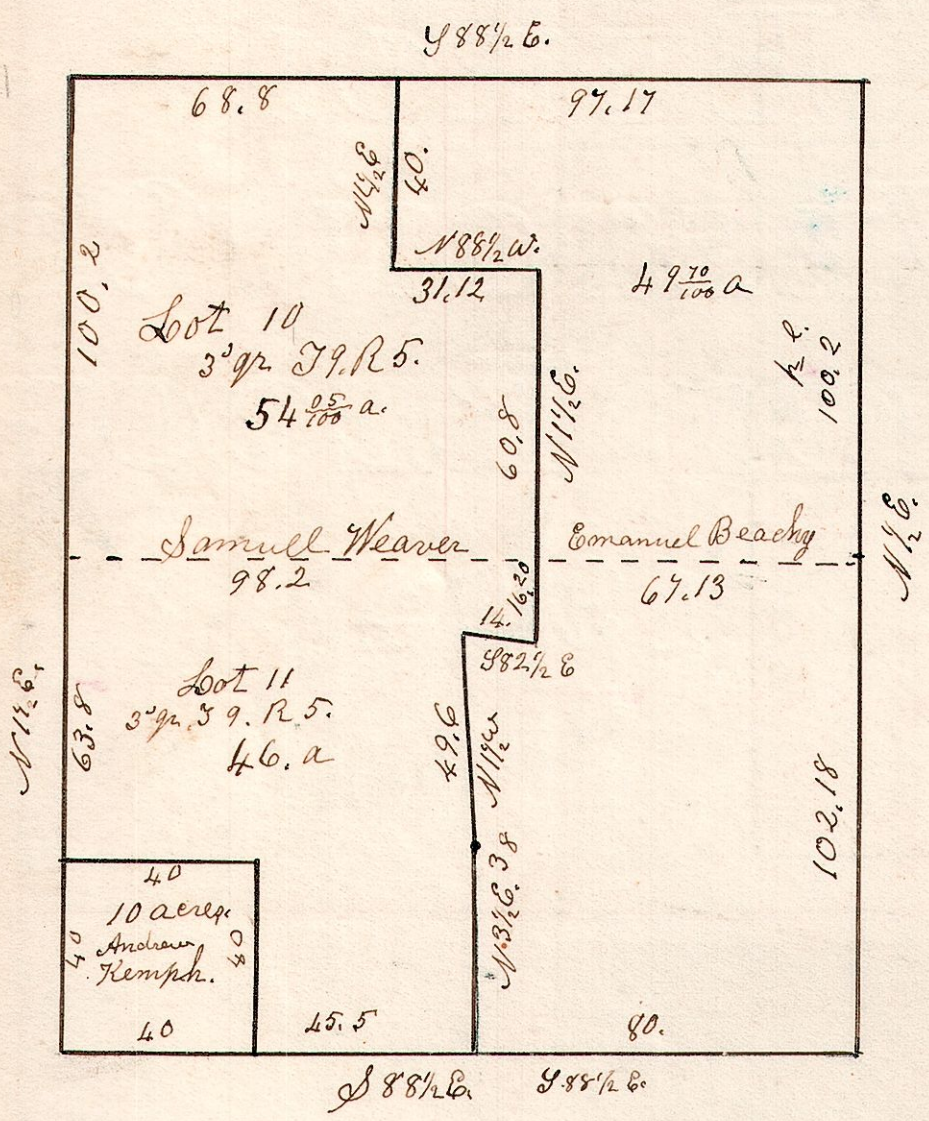 S 88½ E.
68.8
97.17
N 1½ E
40.
N 88½ W.
31.12
49 70/100 a
100.2
Lot 10
3ᵈ qr T 9. R 5.
54 05/100 a.
60.8
N 1½ E.
100.2
Samuell Weaver
Emanuel Beachy
98.2
67.13
N 1½ E.
16.20
14.
S 82½ E
Lot 11
3ᵈ qr. T 9. R 5.
46. a
N 1½ E.
63.8
49.6
N 1½ W
102.18
N. 3½ E. 38
40
10 acres.
Andrew
Kemph.
40
40
40
45.5
80.
S 88½ E.
S 88½ E.